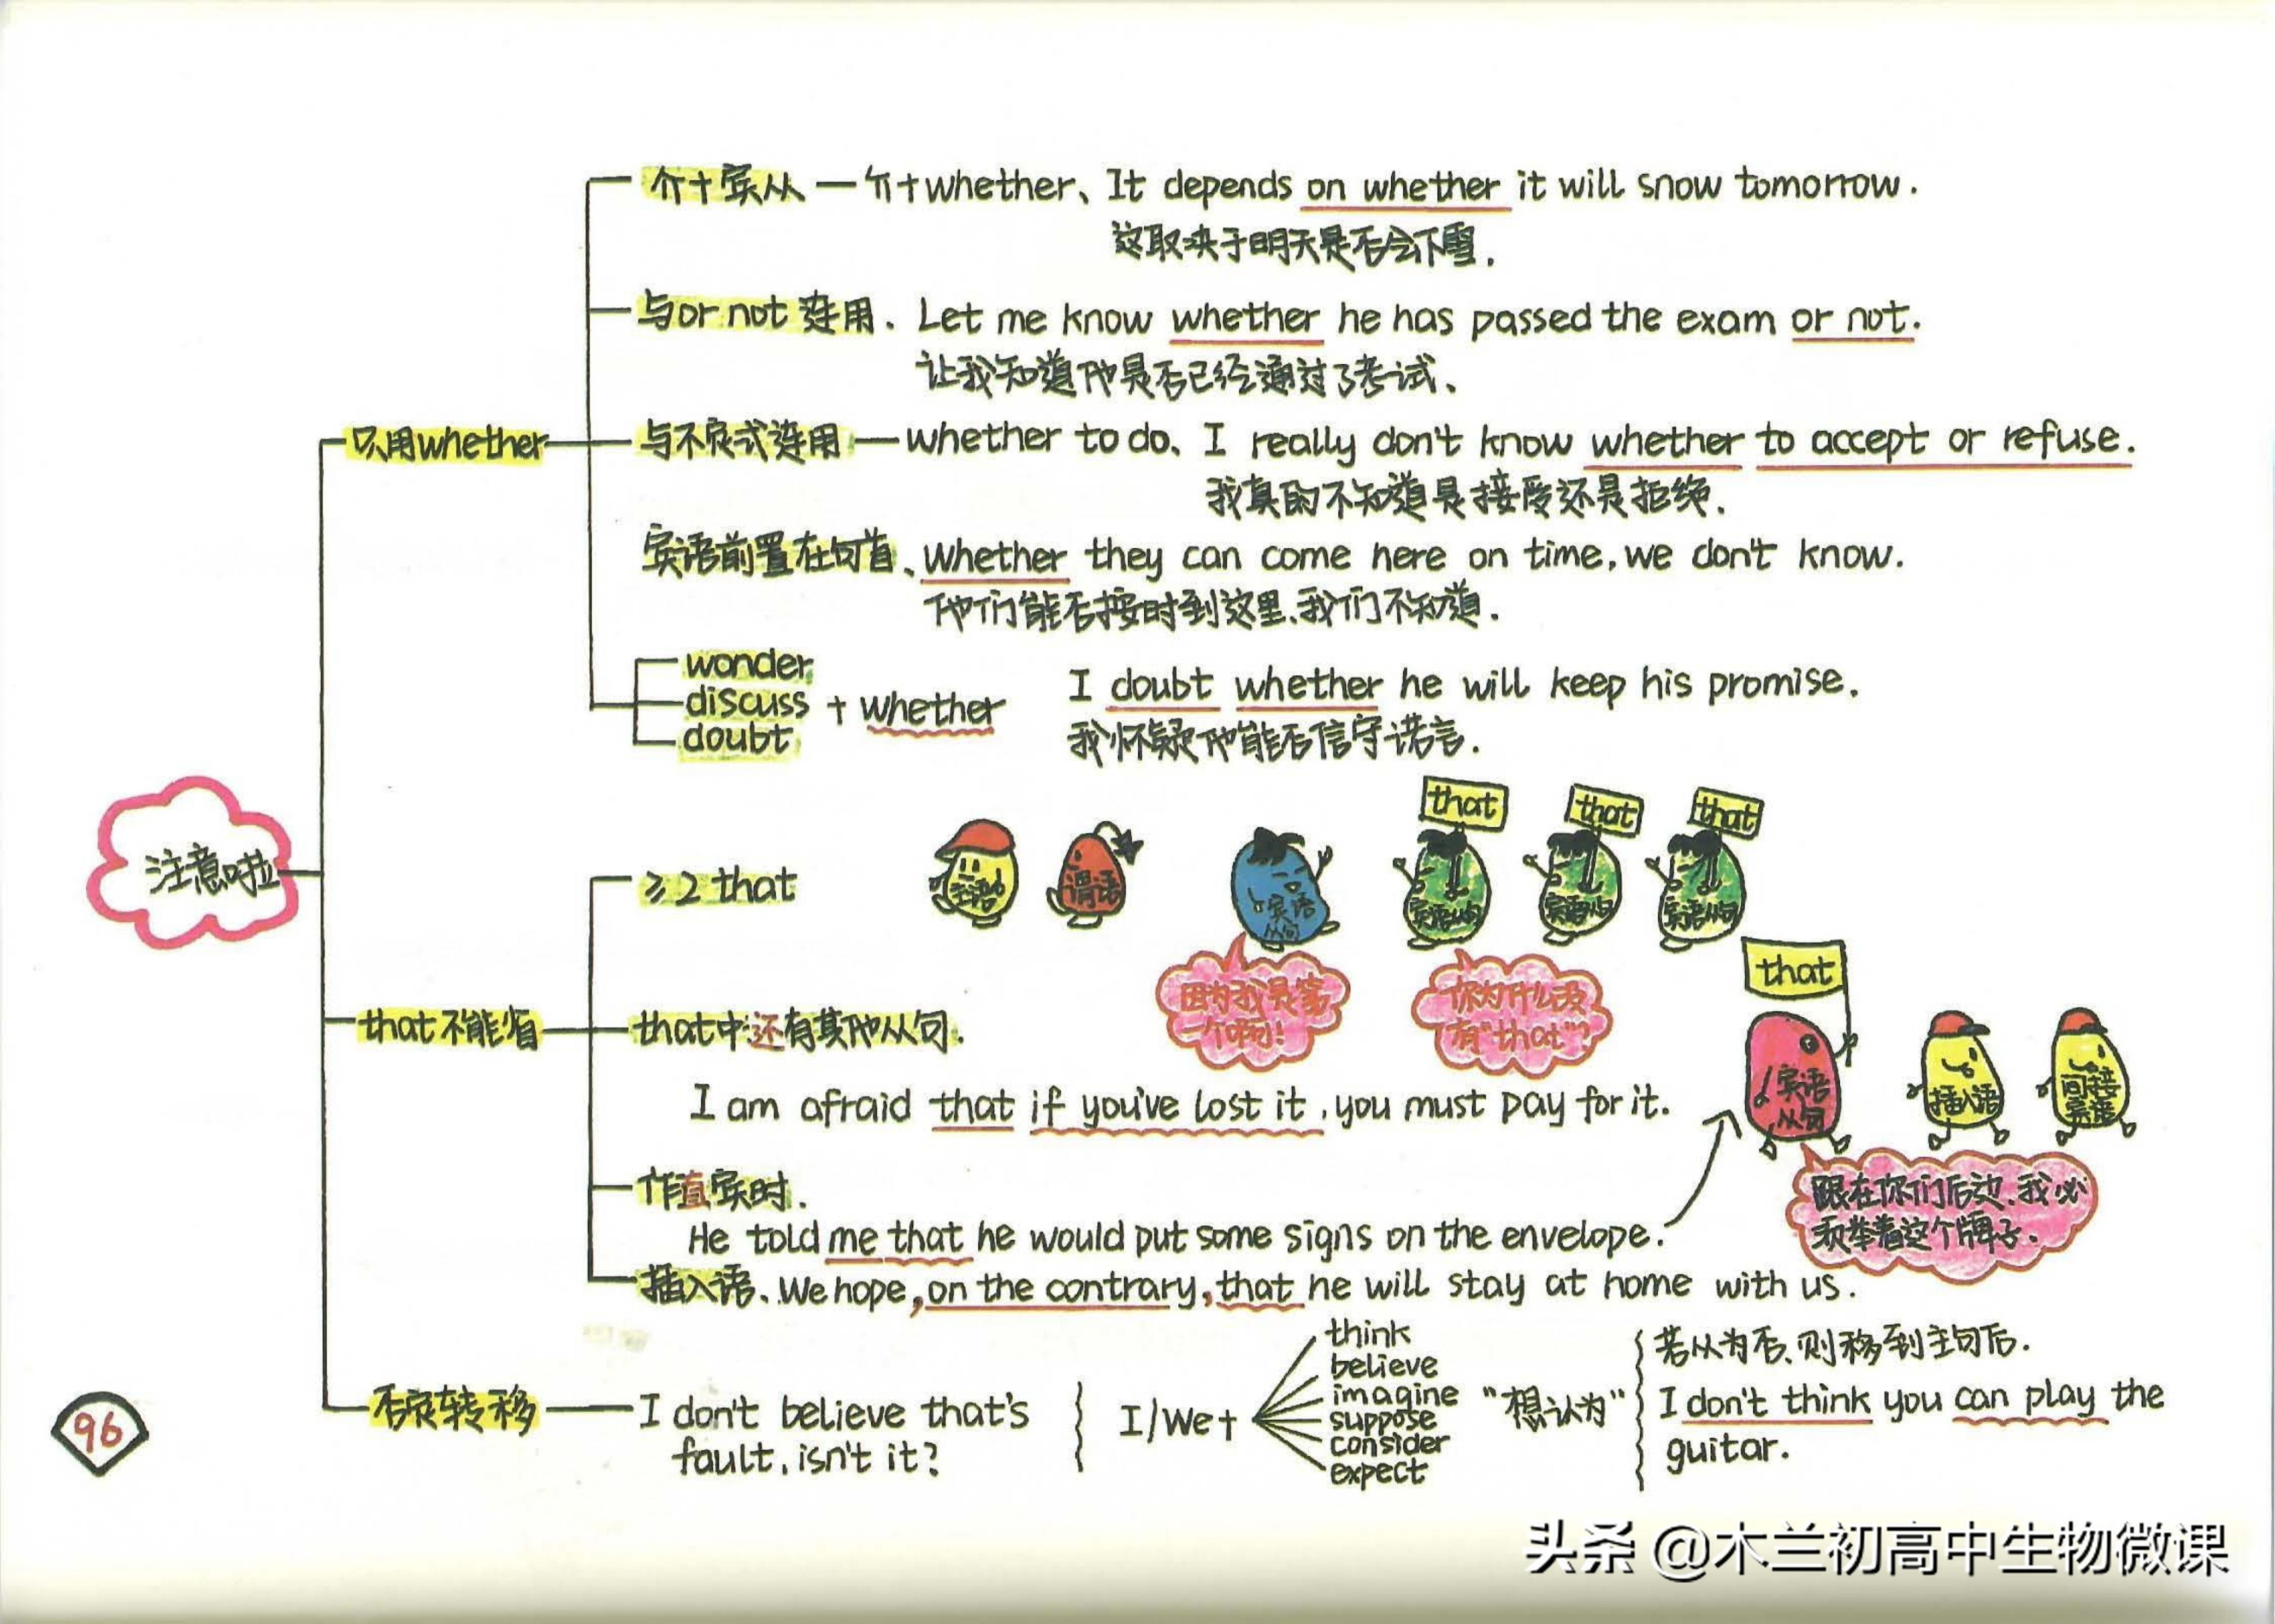 介+宾从 — 介+whether、It depends on whether it will snow tomorrow.
这取决于明天是否会下雪.
与or not 连用. Let me know whether he has passed the exam or not.
让我知道他是否已经通过了考试、
只用whether
与不定式连用 — whether to do、I really don't know whether to accept or refuse.
我真的不知道是接受还是拒绝.
宾语前置在句首、Whether they can come here on time, we don't know.
他们能否按时到这里、我们不知道.
wonder
discuss
doubt
+ whether
I doubt whether he will keep his promise.
我怀疑他能否信守诺言.
注意啦
that不能省
≥2 that
主语
谓语
宾语
从句
that
宾语从句
that
宾语从句
that
宾语从句
因为我是第
一个啊!
你为什么没
有"that"?
that中还有其他从句.
I am afraid that if you've lost it, you must pay for it.
that
宾语
从句
插入语
间接
宾语
跟在你们后边、我必
须举着这个牌子.
作直宾时.
He told me that he would put some signs on the envelope.
插入语、We hope, on the contrary, that he will stay at home with us.
否定转移 — I don't believe that's
fault, isn't it?
I/We+
think
believe
imagine
suppose
consider
expect
"想认为"
若从为否、则移到主句后.
I don't think you can play the
guitar.
96
头条 @木兰初高中生物微课